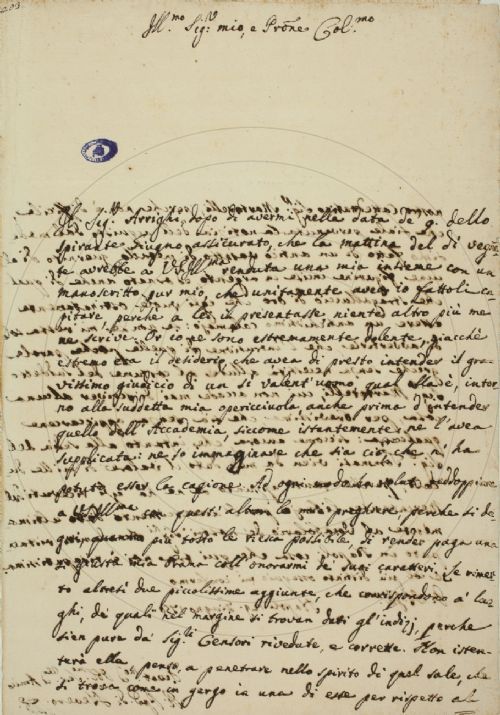 203
Ill.mo Sig.r mio, e Prone Col.mo
Il Sig.r Arrighi dopo di avermi nella data de 9. dello
spirante Giugno assicurato, che la mattina del dì vegnen
te avrebbe a VSIll.ma renduta una mia insieme con un
manoscritto pur mio, che unitamente avea io fattoli ca
pitare perchè a lei il presentasse niente altro più me
ne scrive. Or io ne sono estremamente dolente, giacchè
estremo era il desiderio, che avea di presto intender il gra
vissimo giudicio di un sì valent'uomo, qual Ella è, intor
no alla suddetta mia opericciuola, anche prima d'intender
quello dell'Accademia, siccome istantemente ne l'avea
supplicata: nè so immaginare che sia ciò, che n'ha
potuto esser la cagione. Ad ogni modo ho voluto raddoppiare
a VSIll.ma con questi le mie preghiere perchè si de
gni quanto più tosto le riesca possibile di render paga una
sì giusta mia brama coll'onorarmi de' suoi caratteri. Le rimet
to altresì due picciolissime aggiunte, che corrispondono a' luo
ghi, dei quali nel margine si trovan dati gl'indizj, perchè
sien pure da' Sig.ri Censori rivedute, e corrette. Non isten
terà ella, penso, a penetrare nello spirito di quel sale, che
si trova come in gergo in una di esse per rispetto al